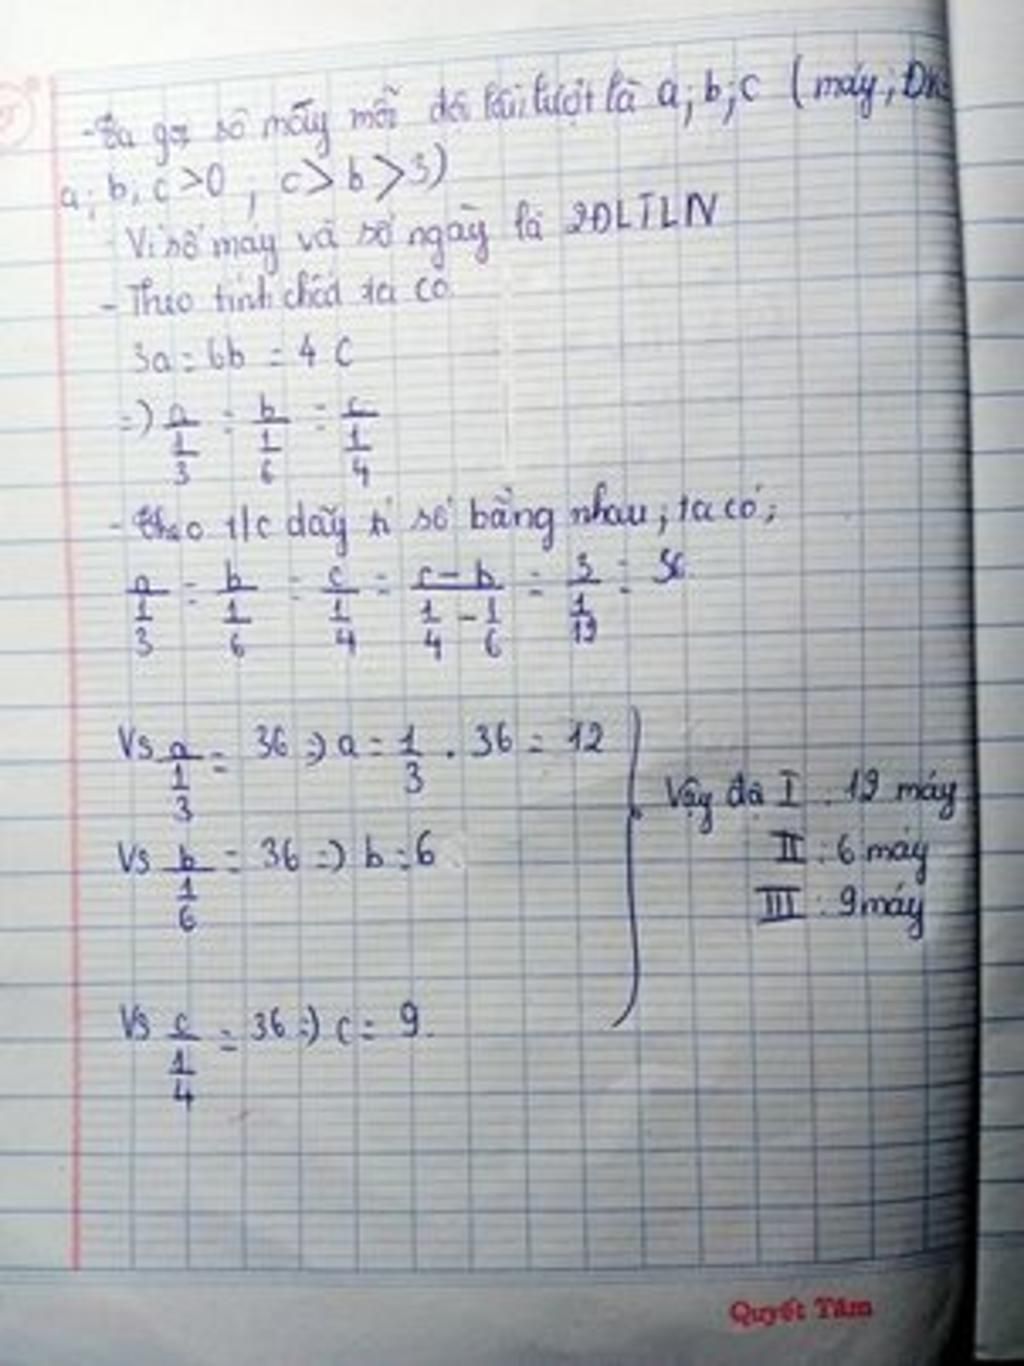 - Ta gọi số máy mỗi đội lần lượt là a; b; c (máy; ĐK:
a; b; c >0 ; c> b >3)
Vì số máy và số ngày là 2ĐLTLN
- Theo tính chất ta có
3a = 6b = 4 C
=) a/(1/3) = b/(1/6) = c/(1/4)
- Theo t/c dãy tỉ số bằng nhau; ta có;
a/(1/3) = b/(1/6) = c/(1/4) = (c-b)/(1/4 - 1/6) = 3/(1/12) = 36
Vs a/(1/3) = 36 =) a = 1/3 . 36 = 12
Vậy đội I : 12 máy
Vs b/(1/6) = 36 =) b = 6
II : 6 máy
III : 9 máy
Vs c/(1/4) = 36 =) c = 9.
Quyết Tâm